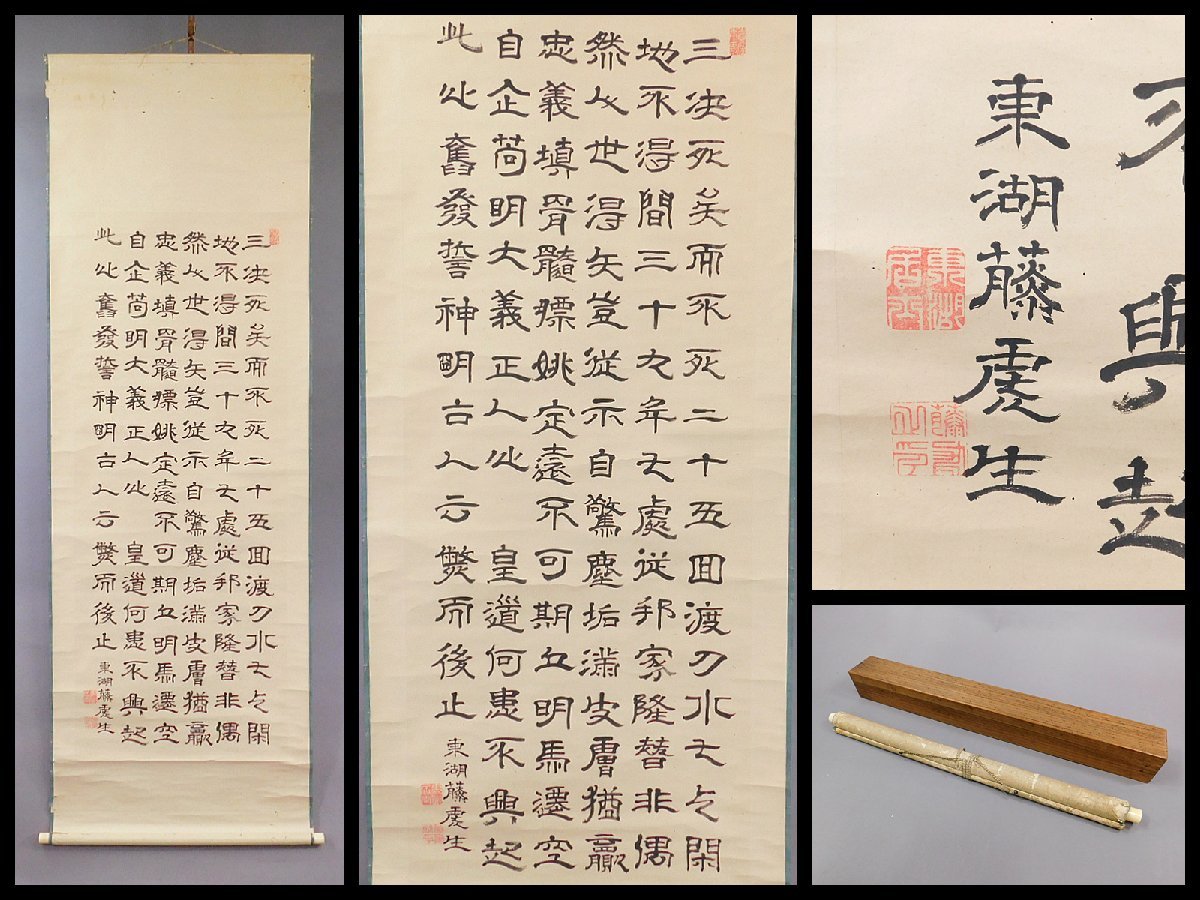 三決死矣而不死二十五回渡刀水五乞閑
地不得閒三十九年七處徙邦家隆替非偶
然人世得失豈徒爾自驚塵垢滿皮膚猶贏
忠義填骨髓嫖姚定遠不可期丘明馬遷空
自企苟明大義正人心 皇道何患不興起
此心奮發誓神明古人云斃而後止 東湖藤彪生
三決死矣而不死二十五回渡刀水五乞閑
地不得閒三十九年七處徙邦家隆替非偶
然人世得失豈徒爾自驚塵垢滿皮膚猶贏
忠義填骨髓嫖姚定遠不可期丘明馬遷空
自企苟明大義正人心 皇道何患不興起
此心奮發誓神明古人云斃而後止 東湖藤彪生
不興起
東湖藤彪生